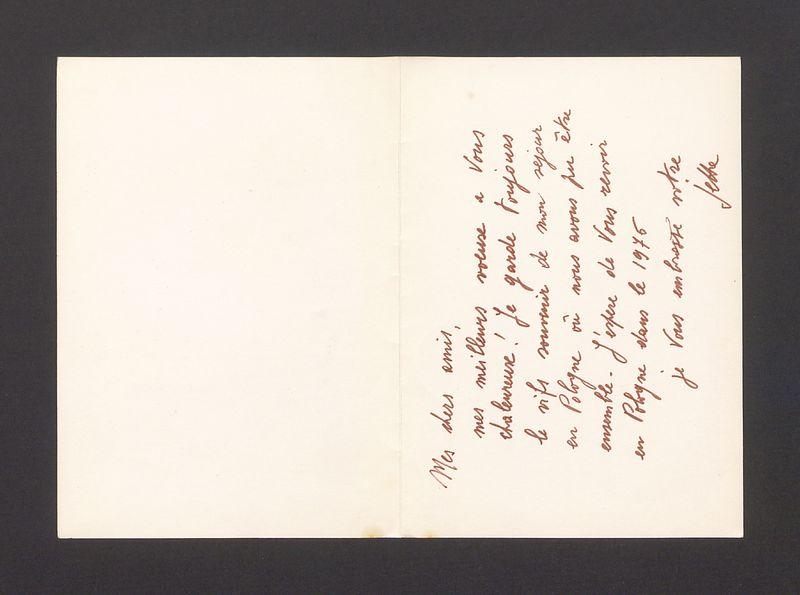 Mes chers amis,
mes meilleurs voeux a Vous
chaleureux! Je garde toujours
le vifs souvenir de mon sejour
en Pologne où nous avons pu être
ensemble. J'espere de Vous revoir
en Pologne dans le 1975
je Vous embrasse votre